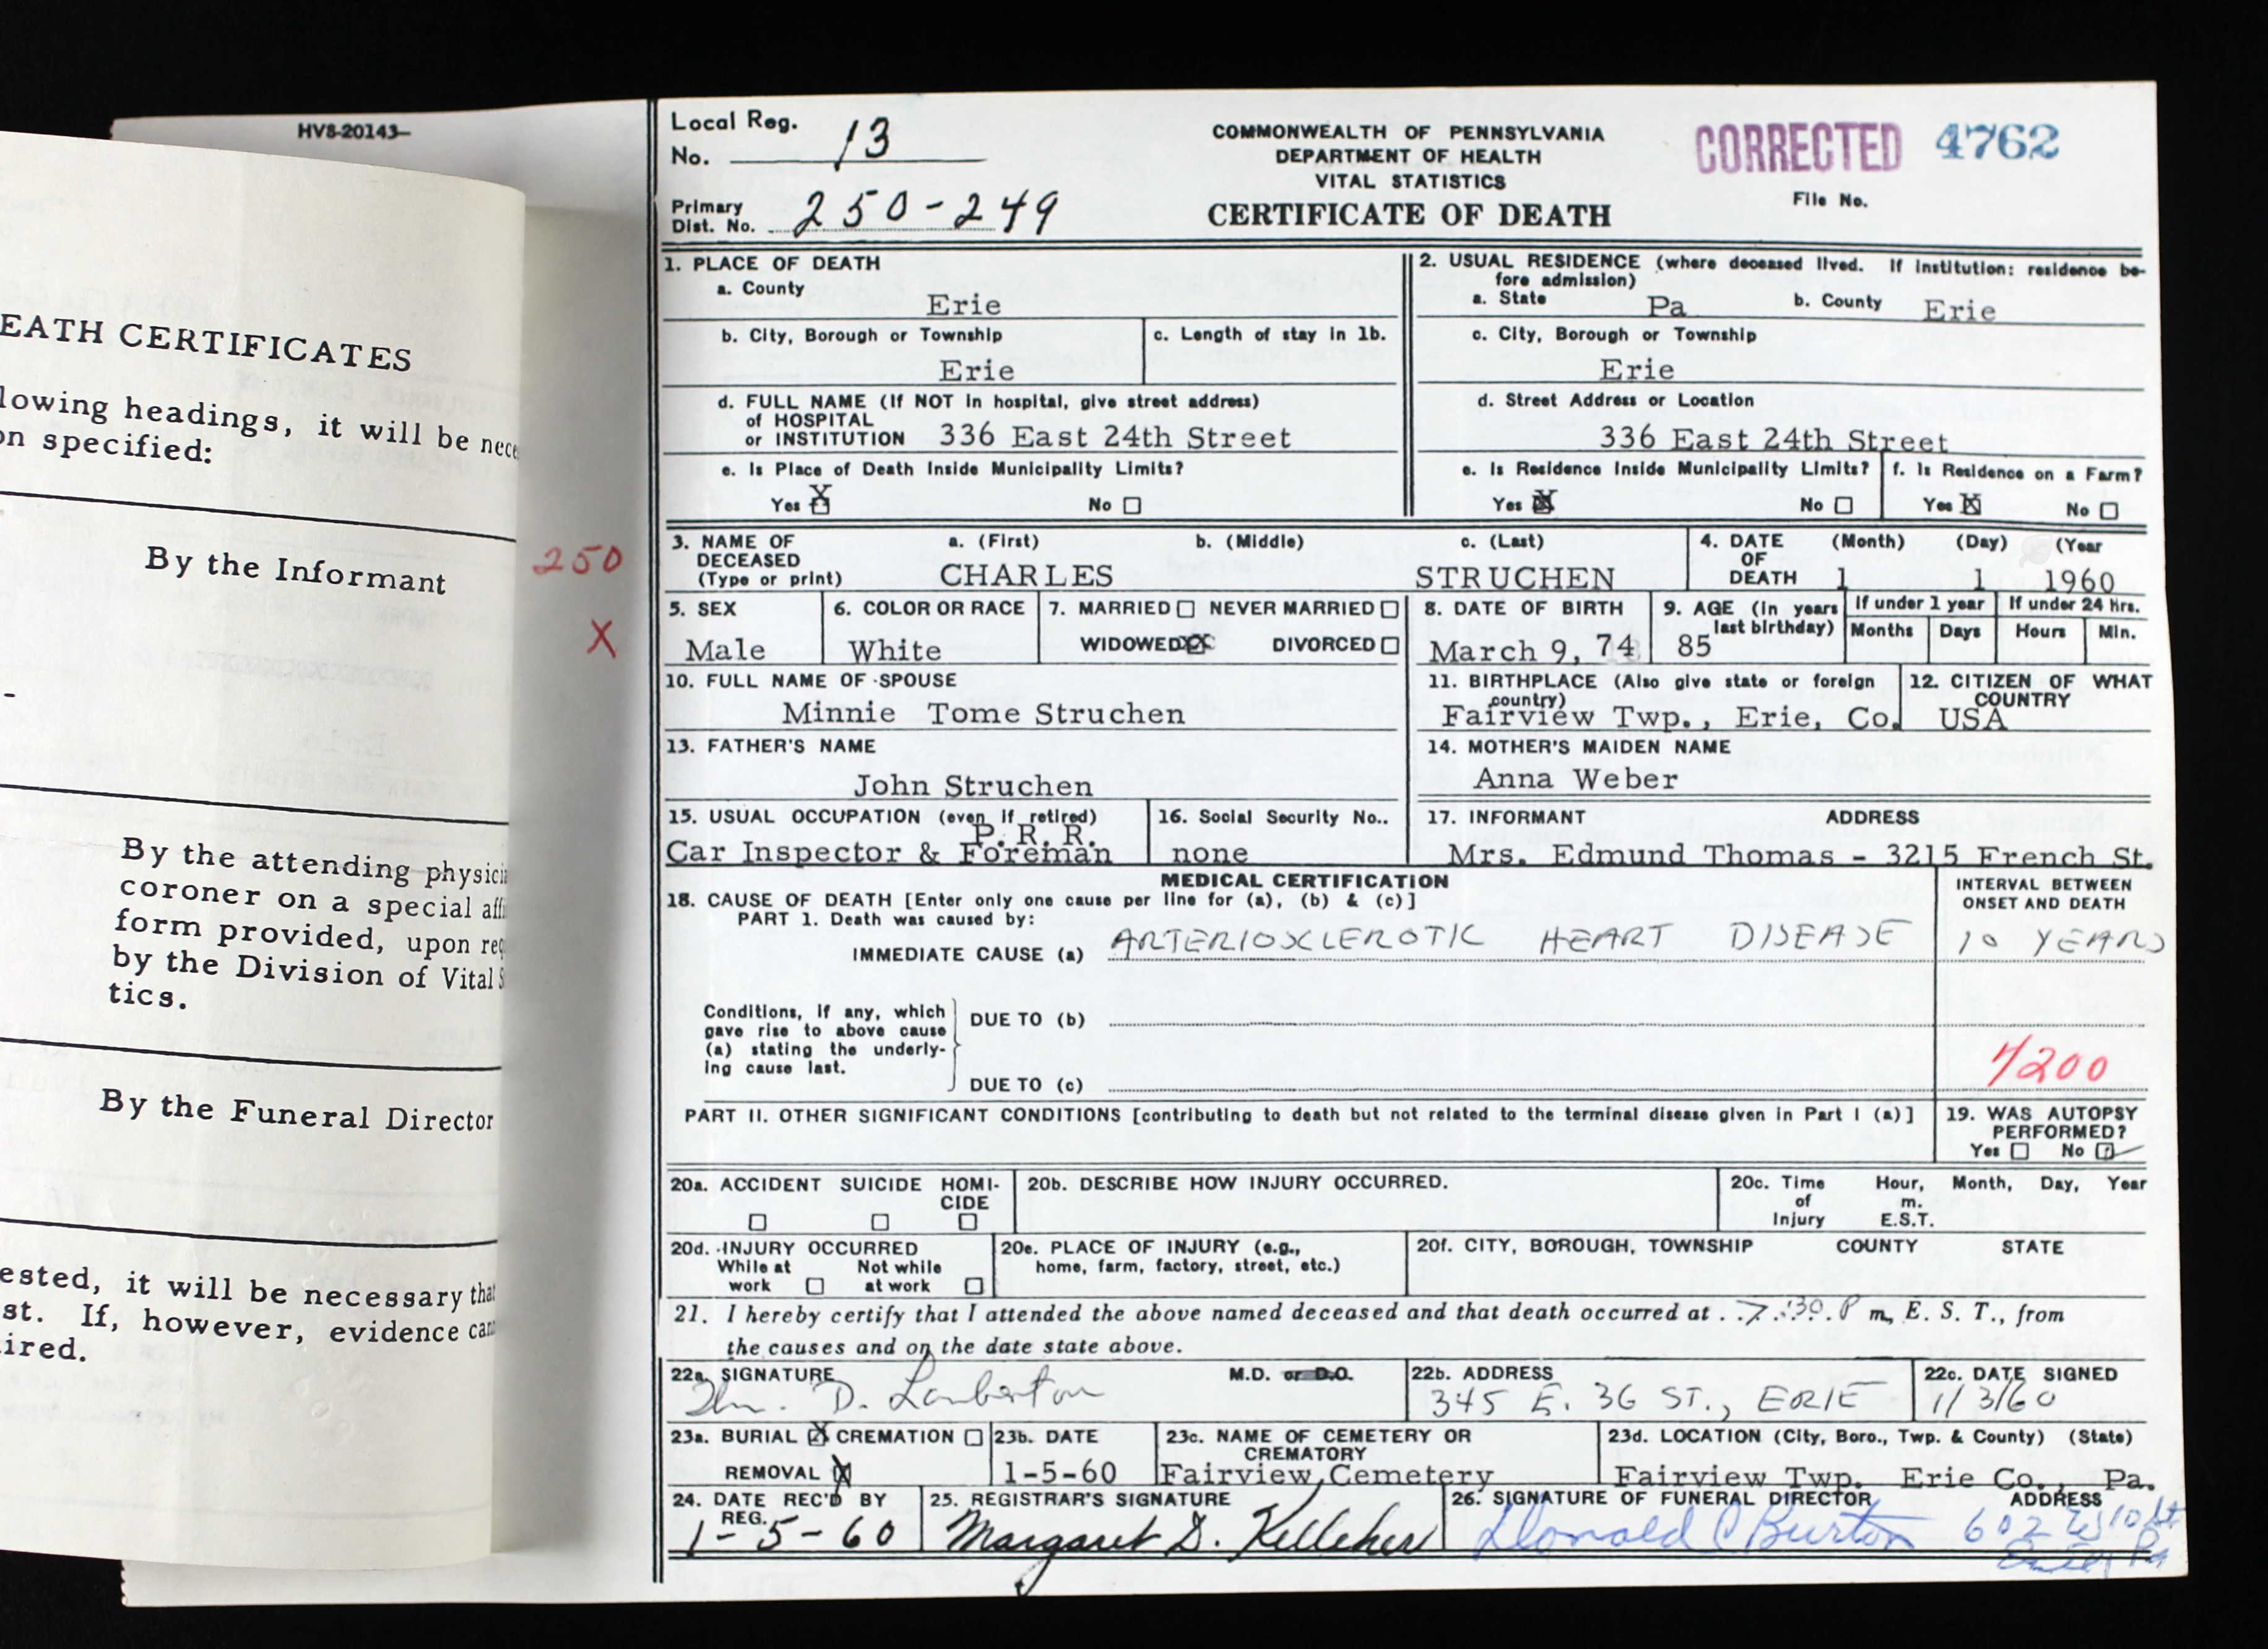 HVS-20143-
EATH CERTIFICATES
lowing headings, it will be nece
on specified:
By the Informant
By the attending physici
coroner on a special affi
form provided, upon req
by the Division of Vital S
tics.
By the Funeral Director
ested, it will be necessary that
st. If, however, evidence can
ired.
250
X
Local Reg.
No. 13
Primary
Dist. No. 250-249
COMMONWEALTH OF PENNSYLVANIA
DEPARTMENT OF HEALTH
VITAL STATISTICS
CERTIFICATE OF DEATH
CORRECTED 4762
File No.
1. PLACE OF DEATH
a. County
Erie
b. City, Borough or Township
Erie
c. Length of stay in 1b.
d. FULL NAME (If NOT in hospital, give street address)
of HOSPITAL
or INSTITUTION 336 East 24th Street
e. Is Place of Death Inside Municipality Limits?
Yes X No
2. USUAL RESIDENCE (where deceased lived. If institution: residence be-
fore admission)
a. State Pa b. County Erie
c. City, Borough or Township
Erie
d. Street Address or Location
336 East 24th Street
e. Is Residence Inside Municipality Limits?
Yes X No
f. Is Residence on a Farm?
Yes X No
3. NAME OF
DECEASED
(Type or print)
a. (First) b. (Middle) c. (Last)
CHARLES STRUCHEN
4. DATE
OF
DEATH
(Month) (Day) (Year
1 1 1960
5. SEX
Male
6. COLOR OR RACE
White
7. MARRIED NEVER MARRIED
WIDOWED XX DIVORCED
8. DATE OF BIRTH
March 9, 74
9. AGE (In years
last birthday)
85
If under 1 year
Months Days
If under 24 Hrs.
Hours Min.
10. FULL NAME OF SPOUSE
Minnie Tome Struchen
11. BIRTHPLACE (Also give state or foreign
country)
Fairview Twp., Erie, Co.
12. CITIZEN OF WHAT
COUNTRY
USA
13. FATHER'S NAME
John Struchen
14. MOTHER'S MAIDEN NAME
Anna Weber
15. USUAL OCCUPATION (even if retired)
P. R. R.
Car Inspector & Foreman
16. Social Security No..
none
17. INFORMANT ADDRESS
Mrs. Edmund Thomas - 3215 French St.
MEDICAL CERTIFICATION
18. CAUSE OF DEATH [Enter only one cause per line for (a), (b) & (c)]
PART 1. Death was caused by:
IMMEDIATE CAUSE (a) ARTERIOSCLEROTIC HEART DISEASE
INTERVAL BETWEEN
ONSET AND DEATH
10 YEARS
Conditions, if any, which
gave rise to above cause
(a) stating the underly-
ing cause last.
DUE TO (b)
DUE TO (c)
4200
PART II. OTHER SIGNIFICANT CONDITIONS [contributing to death but not related to the terminal disease given in Part I (a)]
19. WAS AUTOPSY
PERFORMED?
Yes No
20a. ACCIDENT SUICIDE HOMI-
CIDE
20b. DESCRIBE HOW INJURY OCCURRED.
20c. Time
of
Injury
Hour, Month, Day, Year
m.
E.S.T.
20d. INJURY OCCURRED
While at
work
Not while
at work
20e. PLACE OF INJURY (e.g.,
home, farm, factory, street, etc.)
20f. CITY, BOROUGH, TOWNSHIP COUNTY STATE
21. I hereby certify that I attended the above named deceased and that death occurred at 7:30 P m, E. S. T., from
the causes and on the date state above.
22a. SIGNATURE M.D. or D.O.
D. Lamberton
22b. ADDRESS
345 E. 36 ST., ERIE
22c. DATE SIGNED
1/3/60
23a. BURIAL X CREMATION
REMOVAL X
23b. DATE
1-5-60
23c. NAME OF CEMETERY OR
CREMATORY
Fairview Cemetery
23d. LOCATION (City, Boro., Twp. & County) (State)
Fairview Twp. Erie Co., Pa.
24. DATE REC'D BY
REG.
1-5-60
25. REGISTRAR'S SIGNATURE
Margaret D. Kelleher
26. SIGNATURE OF FUNERAL DIRECTOR ADDRESS
Donald C Burton 602 W 10 St
Erie, Pa